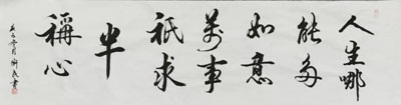 人生哪
能多
如意
萬事
祇求
半
稱心